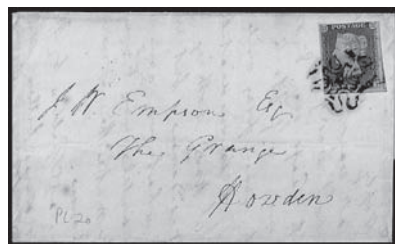 POSTAGE
J. W. Empson Esq
The Grange
Howden
PL 20